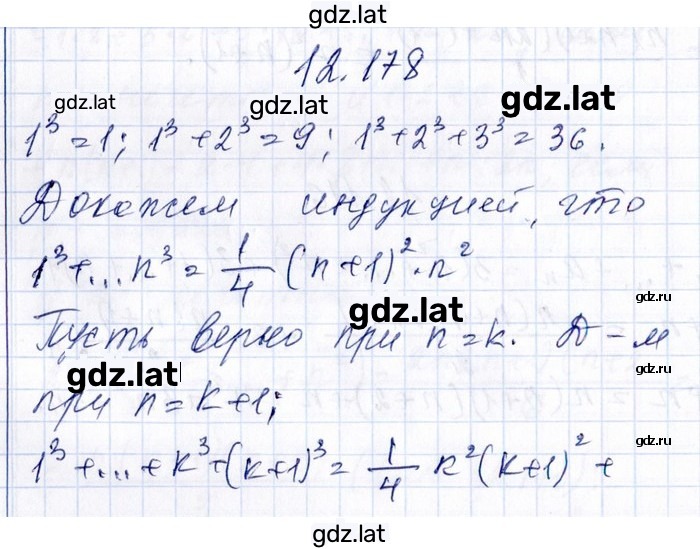 gdz.lat
12.178
gdz.lat gdz.lat gdz.lat
1³=1; 1³+2³=9; 1³+2³+3³=36.
Докажем индукцией, что
1³+...n³=1/4(n+1)²·n²
gdz.lat
gdz.lat
Пусть верно при n=k. Д-м
gdz.lat
gdz.lat
при n=k+1;
1³+...+k³+(k+1)³=1/4 k²(k+1)²+
gdz.lat
gdz.lat